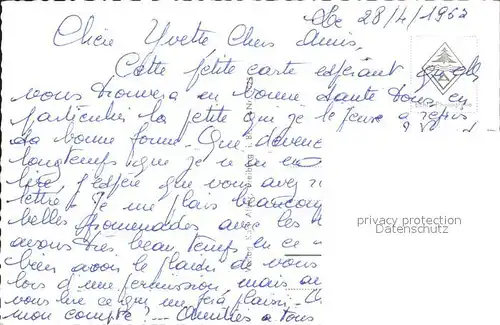 le 28/4/1962
Chère Yvette, Chers Amis,
Cette petite carte espérant qu'elle
vous trouvera en bonne santé tous en
particulier la petite qui je le pense a repris
sa bonne forme. Que devenez
longtemps que je n'ai eu
lire, j'espère que vous avez
lettre. Je me plais beaucoup
belles promenades avec les
avons très beau temps en ce
bien avoir le plaisir de vous
lors d'une permission, mais
vous lire ce qui me fera plaisir.
mon compte? Amitiés a tous
privacy protection
Datenschutz